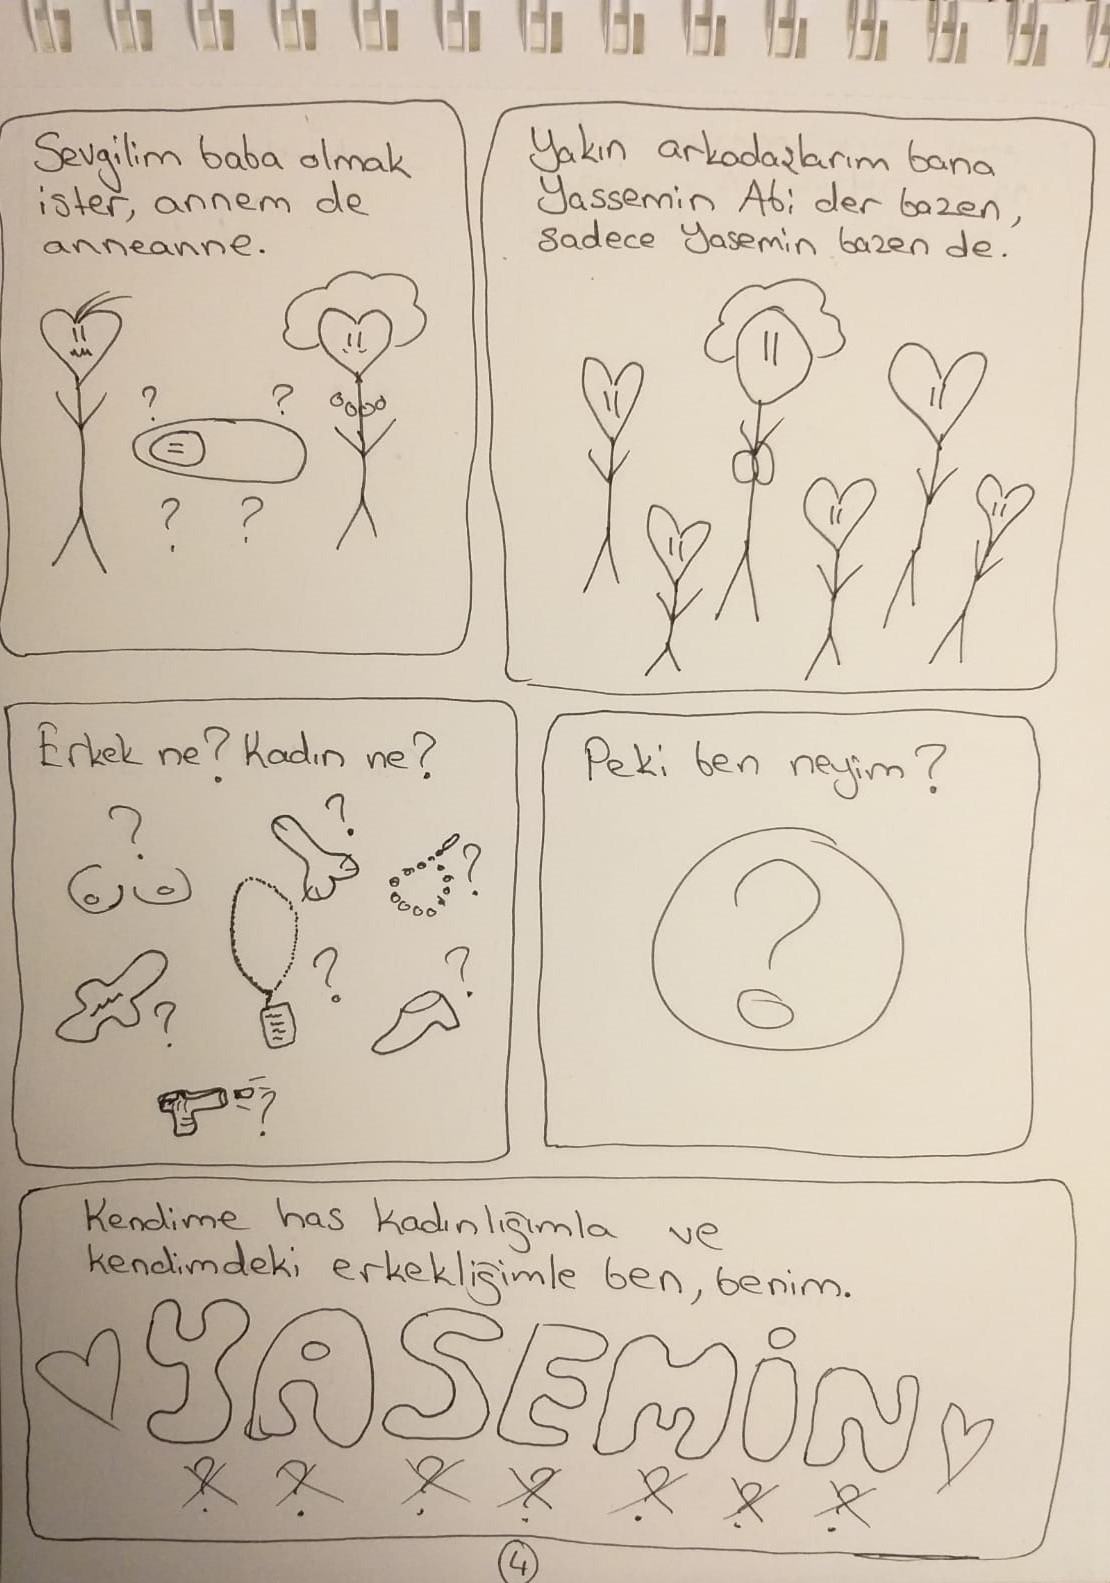 Sevgilim baba olmak
ister, annem de
anneanne.
? ?
? ?
Yakın arkadaşlarım bana
Yassemin Abi der bazen,
sadece Yasemin bazen de.
Erkek ne? Kadın ne?
? ? ?
? ? ?
?
Peki ben neyim?
?
Kendime has kadınlığımla ve
kendimdeki erkekliğimle ben, benim.
YASEMİN
? ? ? ? ? ? ?
4